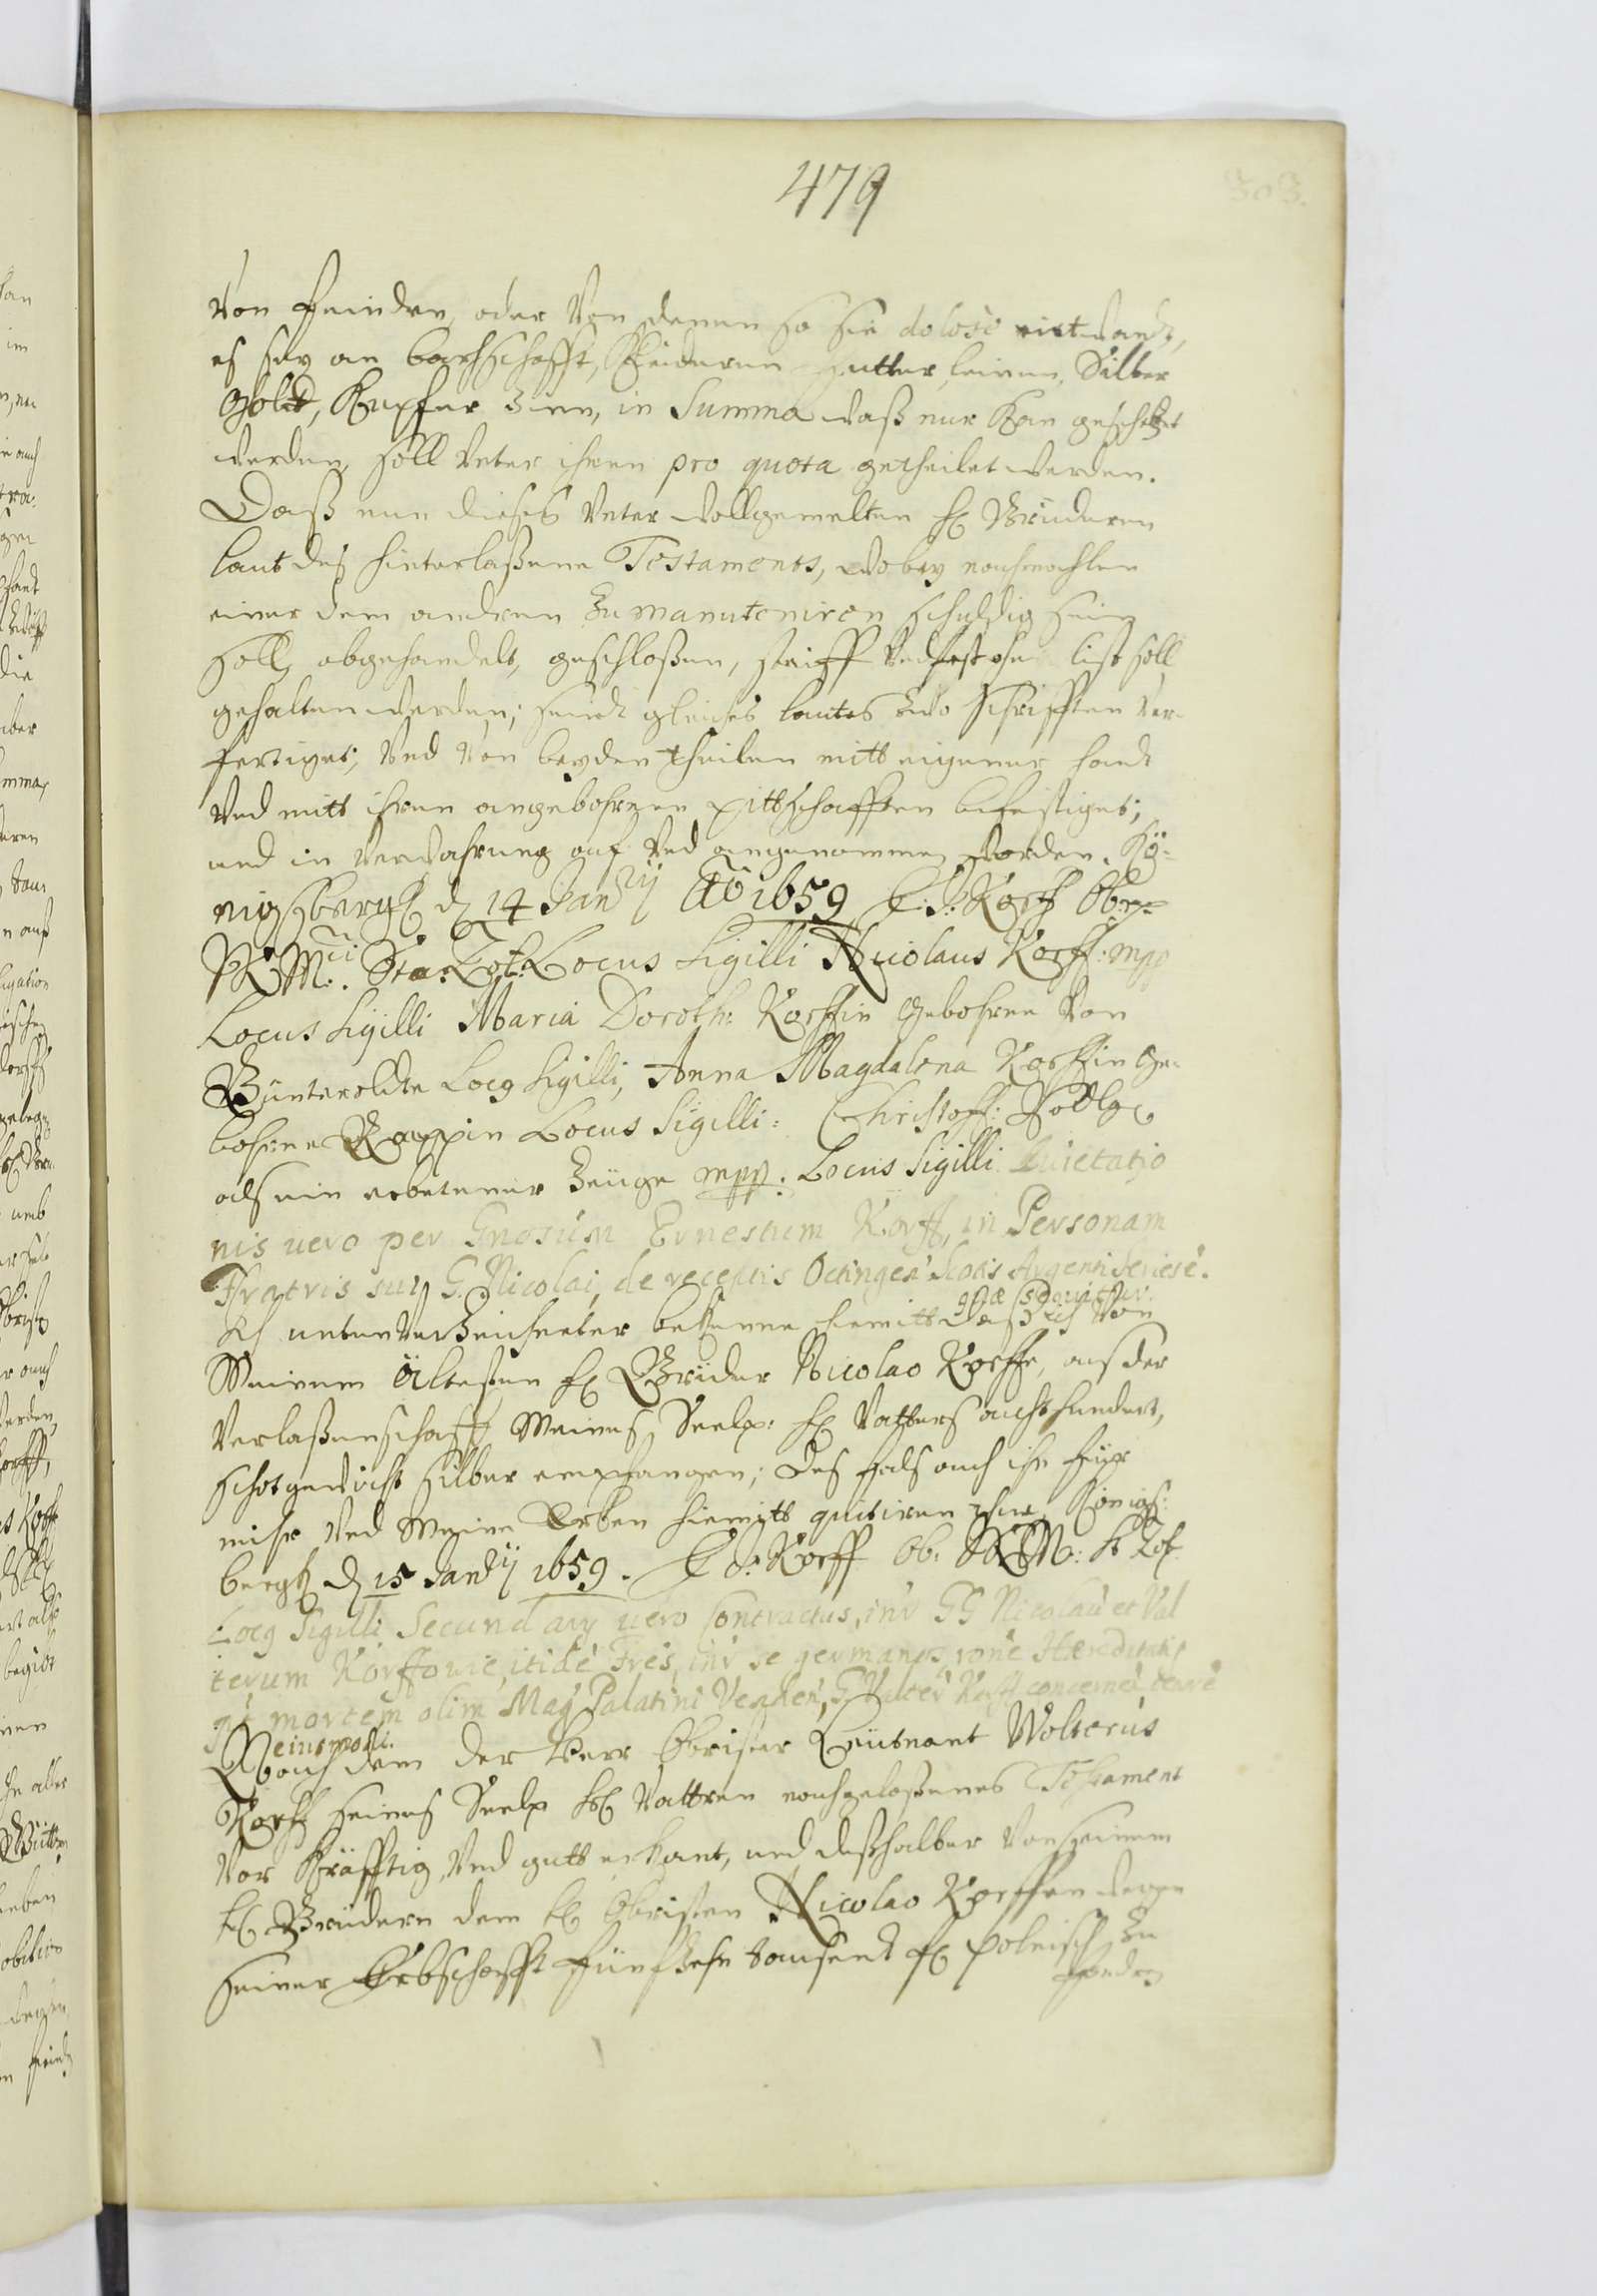 479
303.
Von Feinden, oder Von denen so sie dolose entwandt,
es sey an barschafft, Kleideren Futter, leinen, Silber
Goldt, Kupfer Zinn, in Summa waß nur Kan geschätzet
werden, soll Vnter ihnen pro quota getheilet werden.
Daß nun dieses Vnter wollgemelten H Brüderen
laut des hinterlaßene Testaments, wobey nachmahlen
einer dem anderen Zu manuteniren schuldig sein
soll, abgehandelt, geschloßen, steiff Vnd fest ohn list soll
gehalten werden; seindt gleiches lautes Zwo schrifften Ver-
fertiget, Vnd Von beyden theilen mitt eigener handt
Vnd mitt ihren angebohrnen pittschafften befestiget;
und in Verwahrung auf Vnd angenommen worden. Kö-
nigsbergk d 14 Janry Ao 1659 E. J. Korff Ob.
Locus Sigilli Nicolaus Korff: mpp
Locus Sigilli Maria Doroth: Korffin Gebohrne Von
Locg Sigilli, Anna Magdalena Korffin Ge-
bohrne Rappin Locus Sigilli: Christoff:
als ein erbetener Zeuge mpp: Locus Sigilli Quietatio
nis vero per Gnosum Ernestum Korff, in Personam
Fratris sui G. Nicolai, de receptis Octingen Scotis Argenti Series é.
quæ seqvitur.
Ich unten Verzeichneter bekenne hiemitt daß ich Von
Meinem Ältesten H Brüder Nicolao Korffe, aus der
Verlaßenschafft Meines Seelg: H Vatters achthundert,
schotgewicht silber empfangen; des fals auch ihn für
mihr Vnd Meine Erben hiemitt quitiren thue, Königs-
bergk d 15 Janry 1659. E J: Korff Ob:
Locg Sigilli Secundary vero Contractus, inr GG Nicolau et Val
terum Korffowie, itidé Fres, inr se germanos, rone Hæreditatis
pt mortem olim Mag Palatini Venden, G Valter Korff concernen tenre
eiusmodi.
Nach dem der Herr Obrister Leütnant Wolterus
Korff seines Seelg H Vattren nachgelaßenes Testament
Vor Kräfftig, Vnd gutt erkant, und deßhalber Von seinem
H Brüdern dem H Obristen Nicolao Korffen wegen
seiner Erbschafft fünfzehn tausendt fl polnisch Zu